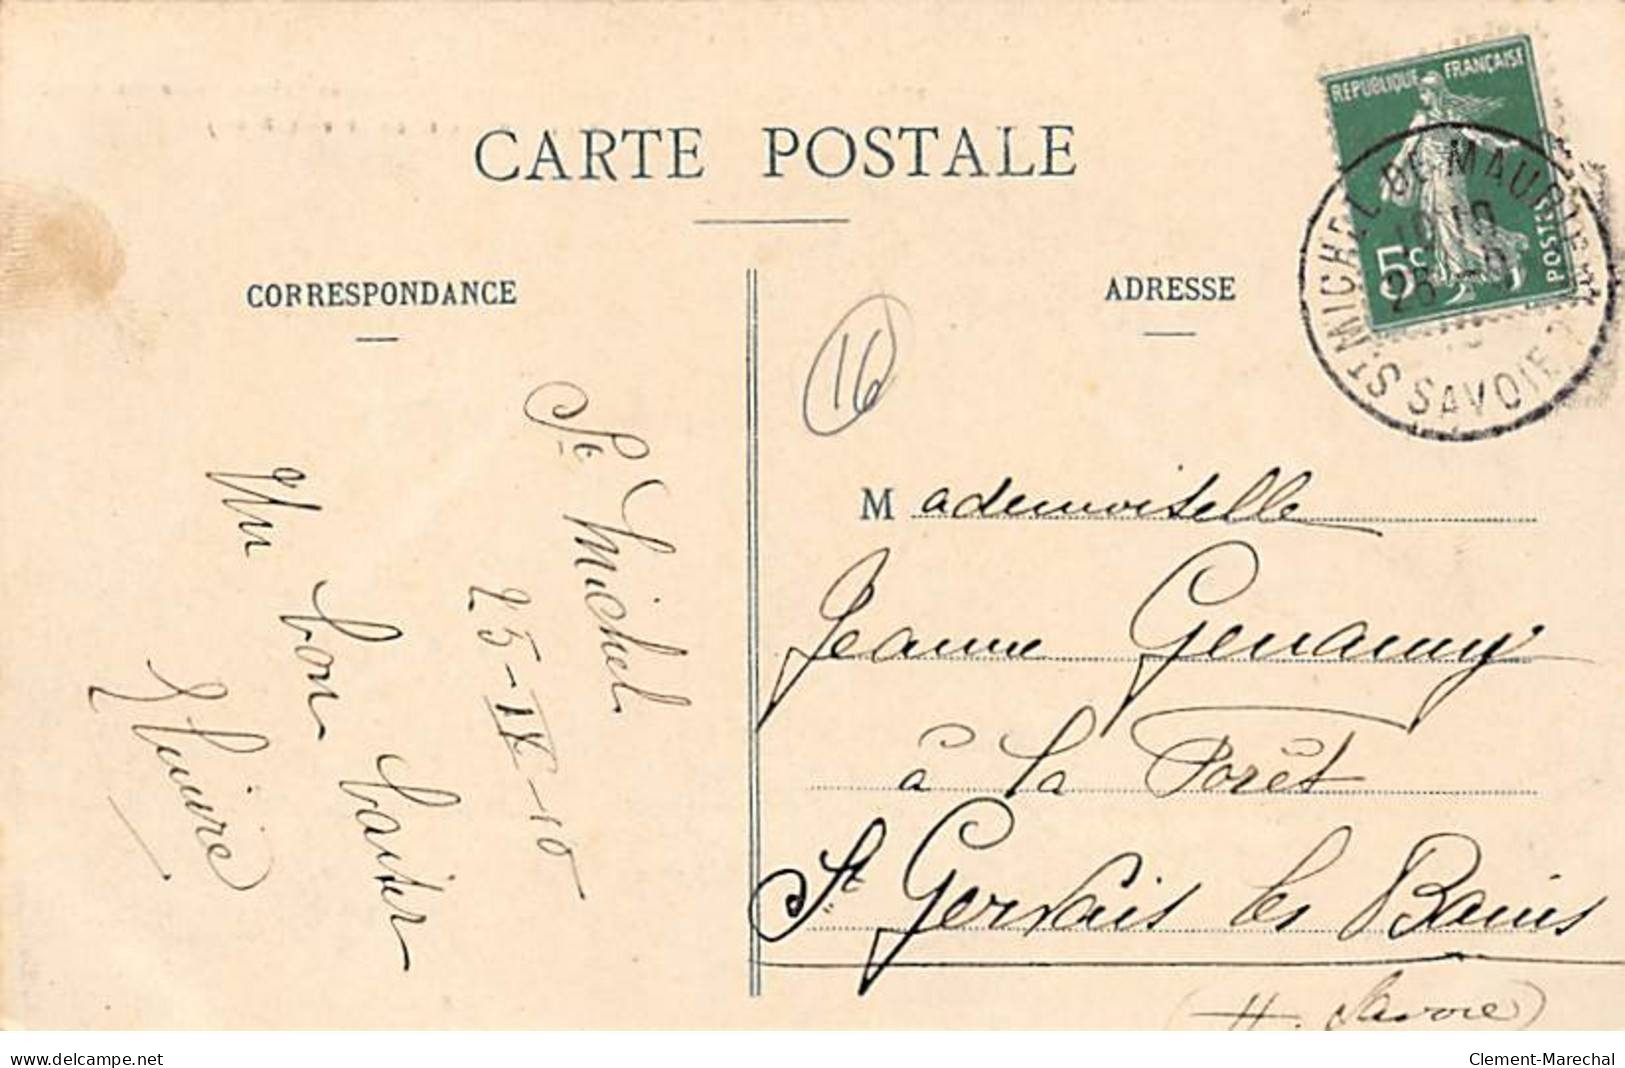 CARTE POSTALE
CORRESPONDANCE
ADRESSE
REPUBLIQUE FRANÇAISE
POSTES
5c
ST MICHEL DE MAURIENNE
SAVOIE
16
St Michel
25-IX-10
Un bon baiser
Mademoiselle
Jeanne
à la Forêt
St Gervais les Bains
(H. Savoie)
www.delcampe.net
Clement-Marechal